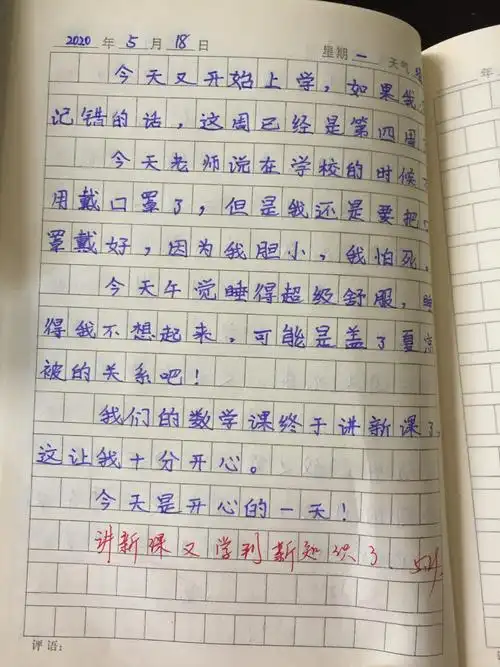 2020 年 5 月 18 日 星期 一 天气
今天又开始上学，如果我
记错的话，这周已经是第四周
今天老师说在学校的时候
用戴口罩了，但是我还是要把
罩戴好，因为我胆小，我怕死。
今天午觉睡得超级舒服，睡
得我不想起来，可能是盖了夏凉
被的关系吧！
我们的数学课终于讲新课了，
这让我十分开心。
今天是开心的一天！
讲新课又学到新知识了
评语：
年